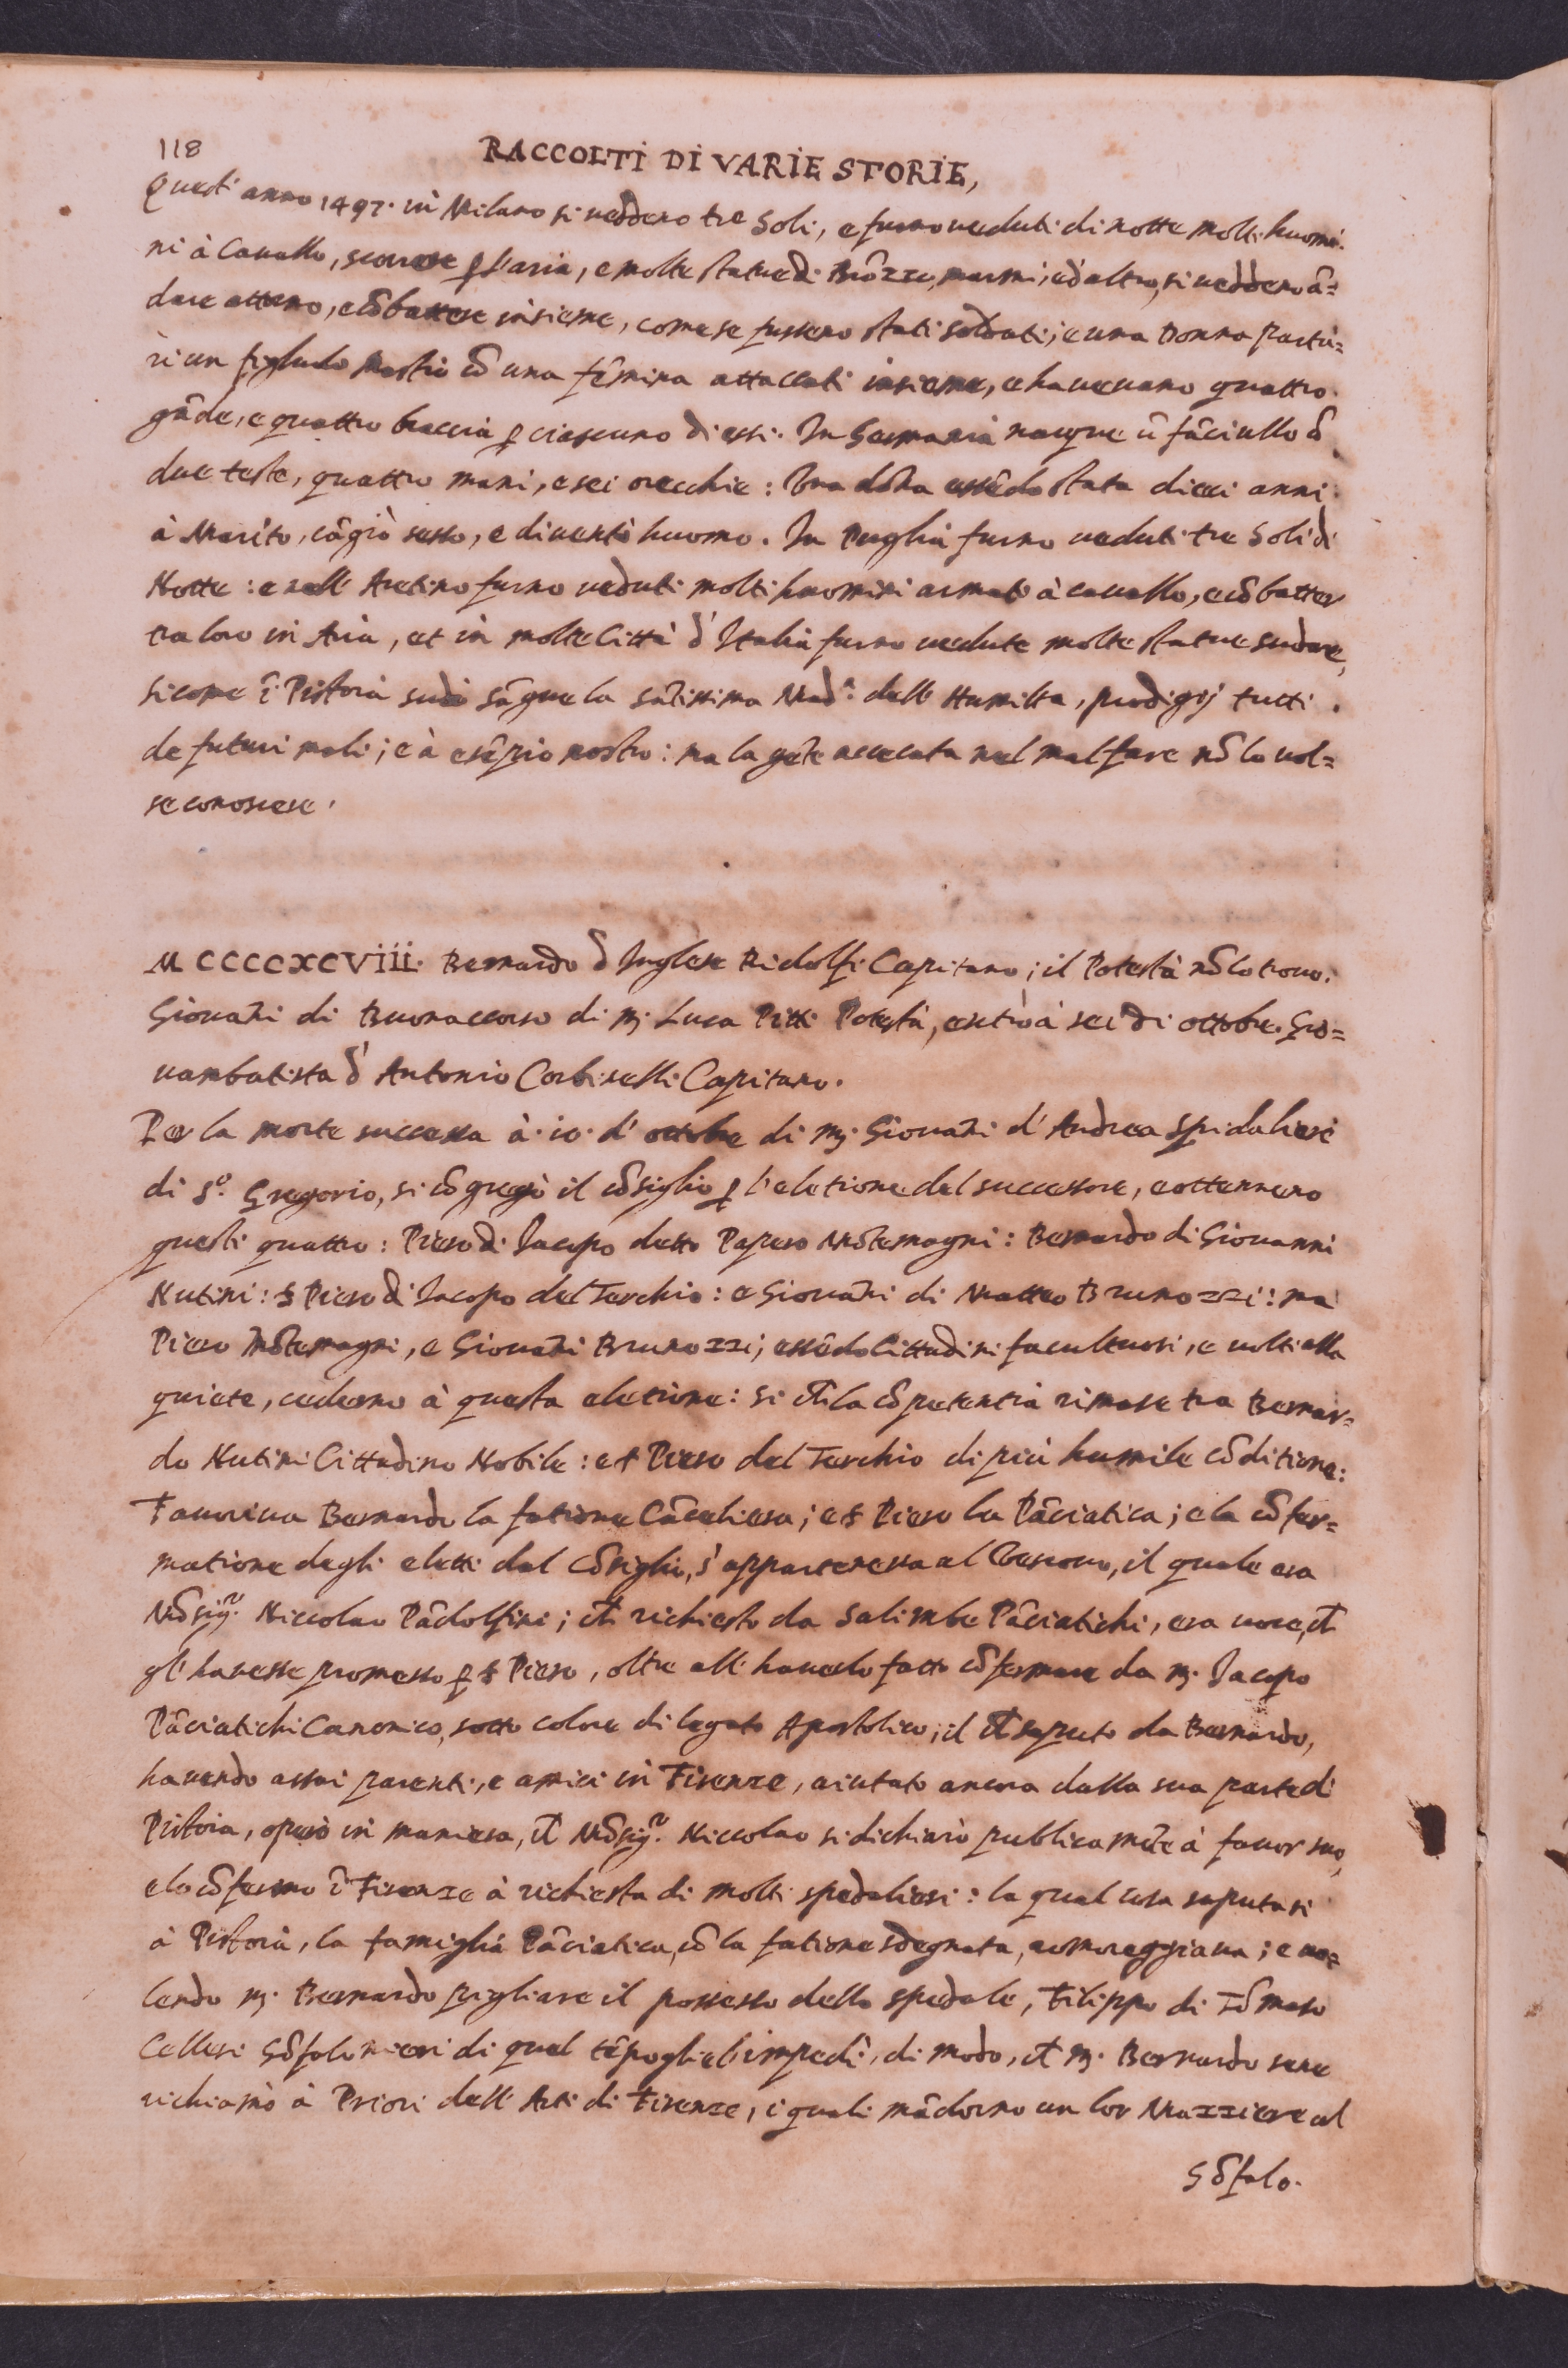 118
RACCOLTI DI VARIE STORIE,
Quest' anno 1497. in Milano si veddeno tre Soli, e furno veduti di notte molti huomi.
ni à Cavallo, scorrere ꝑ l'aria, e molte statue di Brôzzo, marmi, ed altro, si veddeno â=
dare atteno, e cõbattere insieme, come se fusseno stati soldati; e una Donna partu=
rì un figliuolo Mastio cõ una fêmina attaccati insieme, e havevano quattro
gâde, e quattro braccia ꝑ ciascuno di essi. In Germania nacque û fâciullo cõ
due teste, quattro mani, e sei orecchie: Una dõna essêdo stata dieci anni
à Marito, câgiò sesso, e diventò huomo. In Puglia furno veduti tre Soli di
Notte: e nell' Aretino furno veduti molti huomini armati à cavallo, e cõbatter
tra loro in Aria, et in molte Città d' Italia furno vedute molte statue sudare,
sicome î Pistoia sudò sâgue la sâtissima Mad.ª dell' Humiltà, prodigij tutti
de futuri mali; e à esêpio nostro: ma la gête accecata nel mal fare nõ lo vol=
se conoscere.
MCCCCXCVIII. Bernardo d' Inglese Ridolfi Capitano; il Potestà nõ lo trovo.
Giovañi di Buonaccorso di M. Luca Pitti Potestà, entrò à sei di ottobre. Gio=
vambatista d' Antonio Corbinelli Capitano.
Per la morte successa à 10. d' ottobre di M. Giovañi d' Andrea Spidalieri
di S.º Gregorio, si cõgregò il cõsiglio ꝑ l'eletione del successore, e ottenneno
questi quattro: Piero di Jacopo detto Papero Mõtemagni: Bernardo di Giovanni
Nutini: S Piero di Jacopo del Terchio: e Giovañi di Matteo Brunozzi: ma
Piero Mõtemagni, e Giovañi Brunozzi, essêdo Cittadini facultuosi, e volti alla
quiete, cederno à questa eletione: Si ch̃ la cõpetentia rimase tra Bernar=
do Nutini Cittadino Nobile: e S Piero del Terchio di più humile cõditione:
Favoriva Bernardo la fatione Câceliera; e S Piero la Pâciatica; e la cõfer=
matione degli eletti dal Cõsiglio, s' apparteneva al Vescovo, il quale era
Mõsig.r Niccolao Pâdolfini; ch̃ richiesto da Salimbe Pâciatichi, era voce, ch̃
gl' havesse promesso ꝑ S Piero, oltre all' haverlo fatto cõfermare da M. Jacopo
Pâciatichi Canonico, sotto colore di legato Apostolico; il ch̃ saputo da Bernardo,
havendo assai parenti, e amici in Firenze, aiutato ancora dalla sua parte di
Pistoia, operò in maniera, ch̃ Mõsig.r Niccolao si dichiarò publicamête à favor suo,
e lo cõfermò î Firenze à richiesta di molti spedalieri: la qual cosa saputasi
à Pistoia, la famiglia Pâciatica, cõ la fatione sdegnata, romoreggiava; e vo=
lendo M. Bernardo pigliare il possesso dello spedale, Filippo di Tõmaso
Cellesi Gõfalonieri di quel têpo gliel' impedì, di modo, ch̃ M. Bernardo sene
richiamò à Priori dell' Arti di Firenze, i quali mâdorno un lor Mazziere al
Gõfalo.